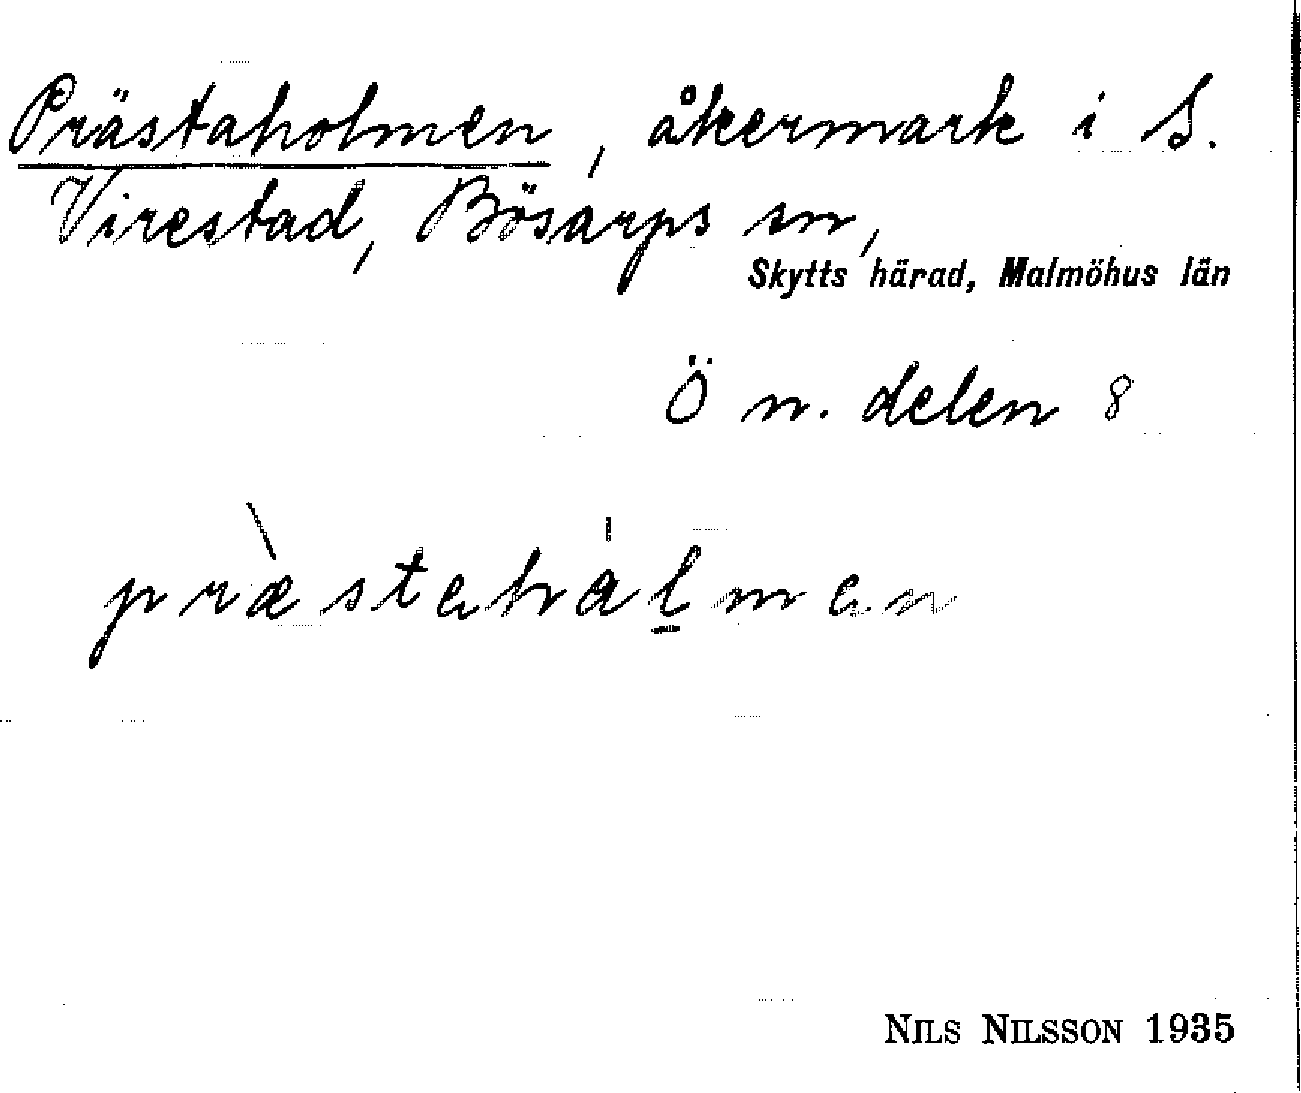 Prästaholmen, åkermark i S.
Virestad, Bösarps sn,
Skytts härad, Malmöhus län
Ö n. delen 8
præstahalman
NILS NILSSON 1935